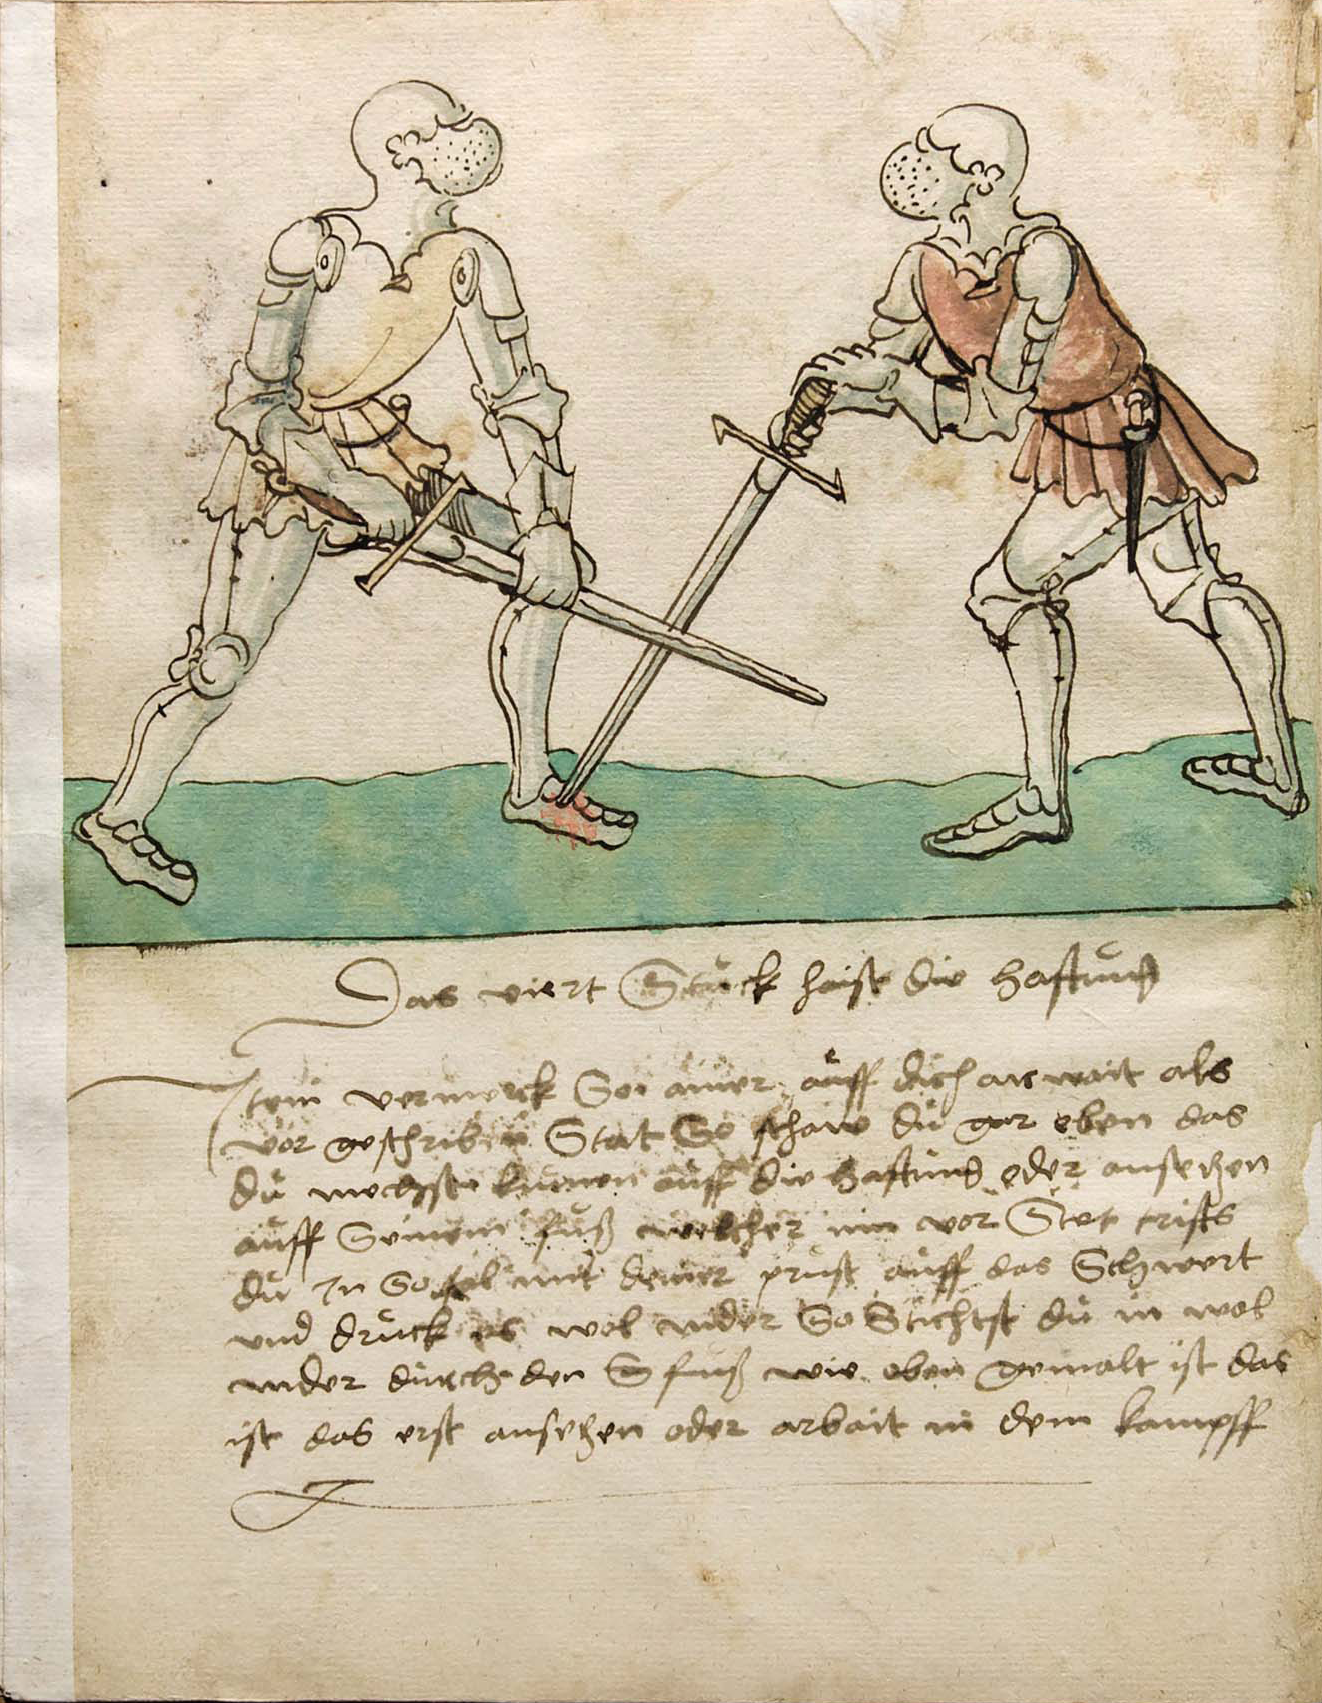 Das viert Stuck haist die Hafftung
Item vermerck So ainer auff dich arwait als
vor geschriben Stat So schaw du gar eben das
du mechst kumen auff die hafftung oder ansetzen
auff Seinem fuß welcher im vor Stet triffs
du In So fal mit deiner prust auff das Schwert
vnd druck es wol nider So Stichst du in wol
nider durch den fuß wie oben gemalt ist das
ist das erst ansetzen oder arbait in dem kampff